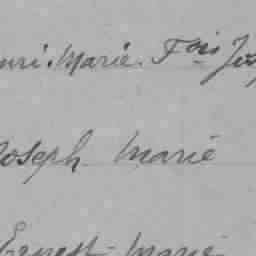 nri. Marie. Fois Jos
Joseph Marie
Ernest Marie